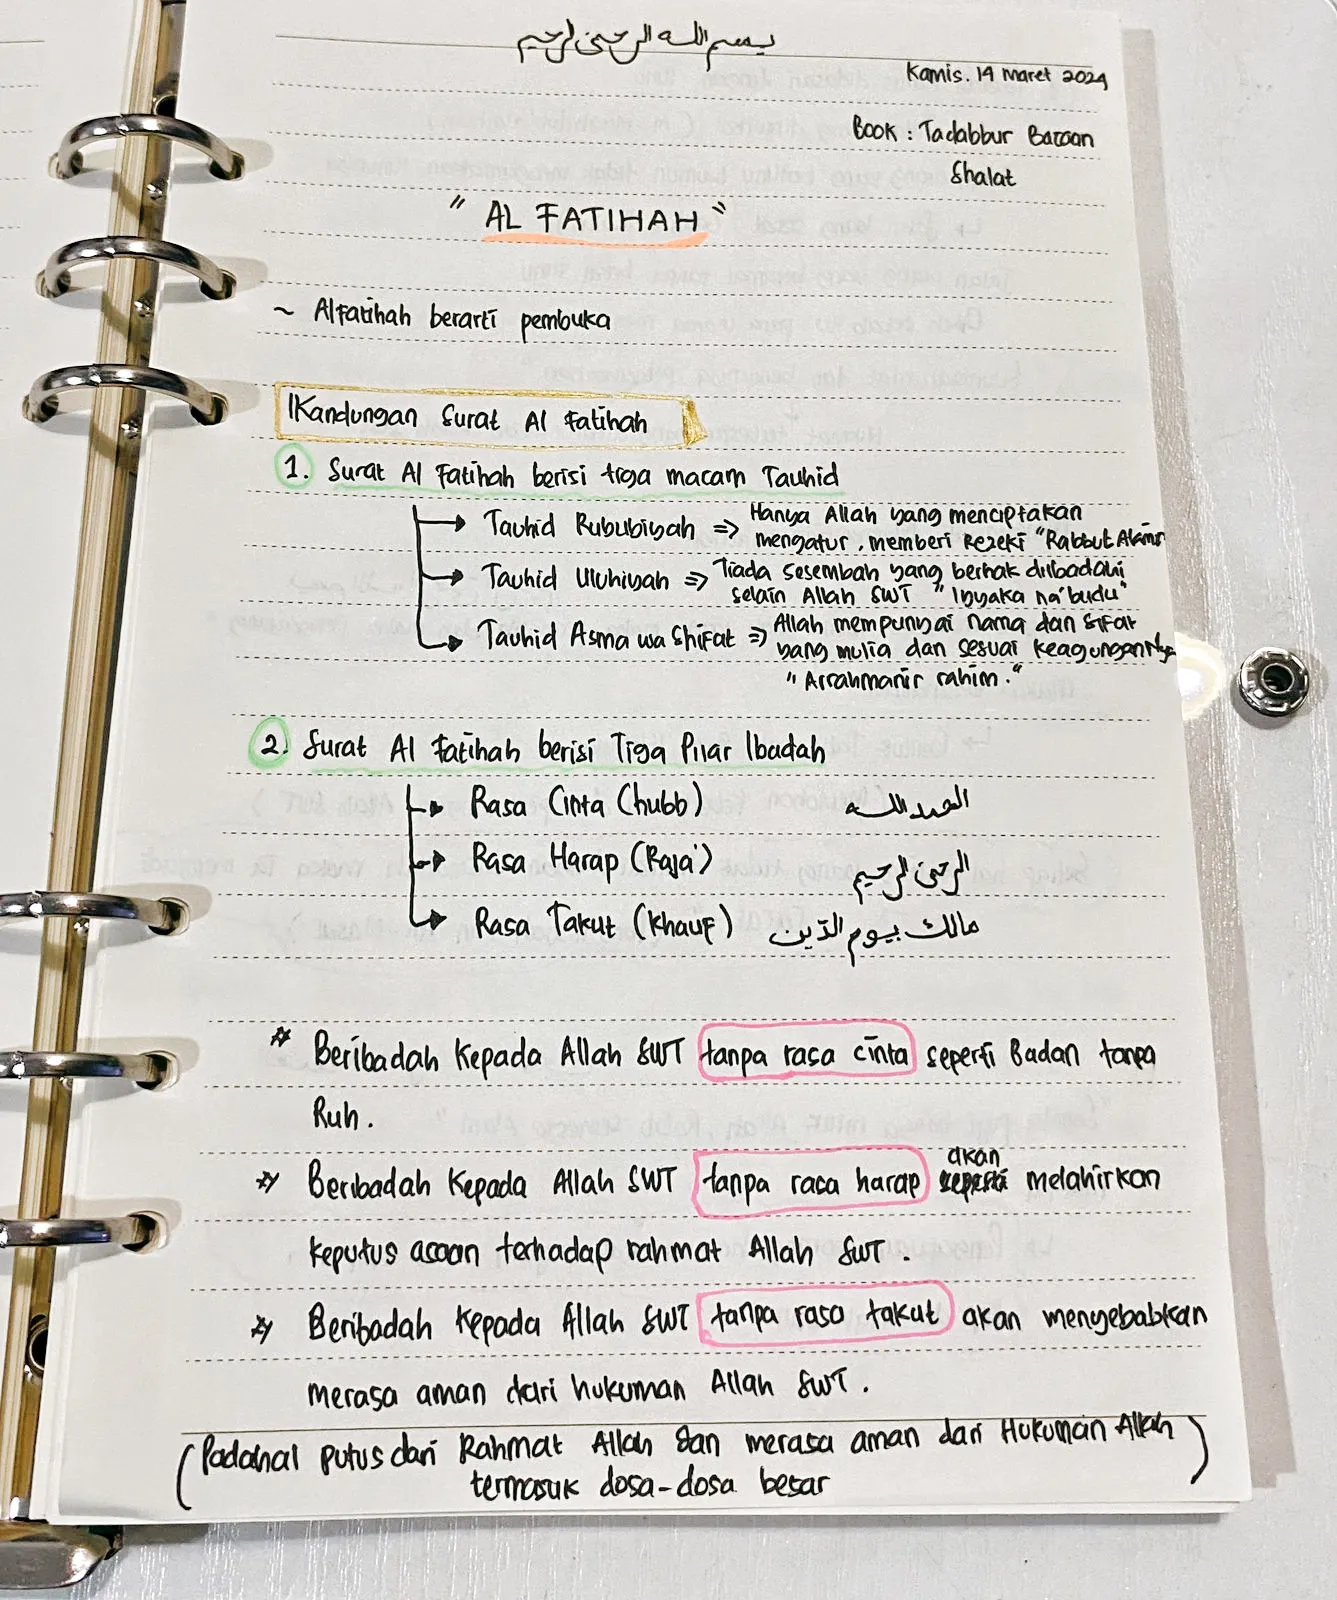 بسم الله الرحمن الرحيم
Kamis. 14 Maret 2024
Book : Tadabbur Bacaan
Shalat
" AL FATIHAH "
~ Alfatihah berarti pembuka
Kandungan Surat Al Fatihah
1. Surat Al Fatihah berisi tiga macam Tauhid
→ Tauhid Rububiyah => Hanya Allah yang menciptakan
mengatur, memberi Rezeki "Rabbul Alamin
→ Tauhid Uluhiyah => Tiada sesembah yang berhak diibadahi
selain Allah SWT " Iyyaka na'budu"
→ Tauhid Asma wa Shifat => Allah mempunyai nama dan sifat
yang mulia dan sesuai keagunganNya
" Arrahmanir rahim . "
2. Surat Al Fatihah berisi Tiga Pilar Ibadah
→ Rasa Cinta (hubb) الحمد الله
→ Rasa Harap (Raja') الرحمن الرحيم
→ Rasa Takut (Khauf) مالك يوم الدّين
☆ Beribadah kepada Allah SWT tanpa rasa cinta seperti Badan tanpa
Ruh .
☆ Beribadah kepada Allah SWT tanpa rasa harap akan melahirkan
keputus asaan terhadap rahmat Allah SWT .
☆ Beribadah kepada Allah SWT tanpa rasa takut akan menyebabkan
merasa aman dari hukuman Allah SWT .
( Padahal putus dari Rahmat Allah dan merasa aman dari Hukuman Allah
termasuk dosa-dosa besar )